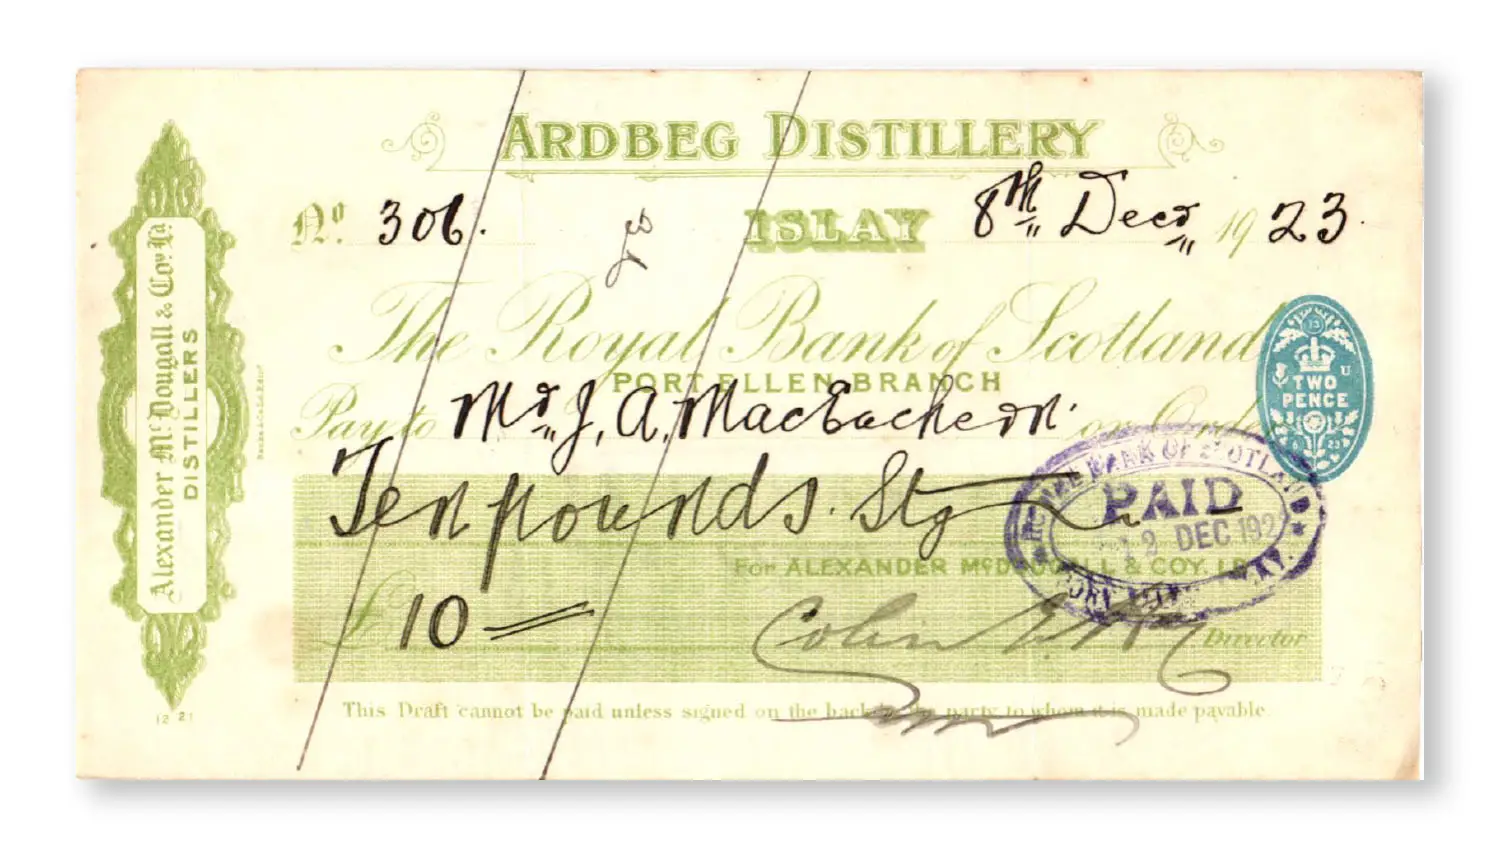 ARDBEG DISTILLERY
No. 306.
ISLAY 8th Decr 1923.
The Royal Bank of Scotland
PORT ELLEN BRANCH
Pay to Mr. J. A. MacEachern. or Order
Ten pounds. Stg
FOR ALEXANDER McDOUGALL & COY. LD.
£10
Colin Director
This Draft cannot be paid unless signed on the back by the party to whom it is made payable.
Alexander McDougall & Coy. Ld
DISTILLERS
12 21
TWO
PENCE
ROYAL BANK OF SCOTLAND
PAID
12 DEC 192